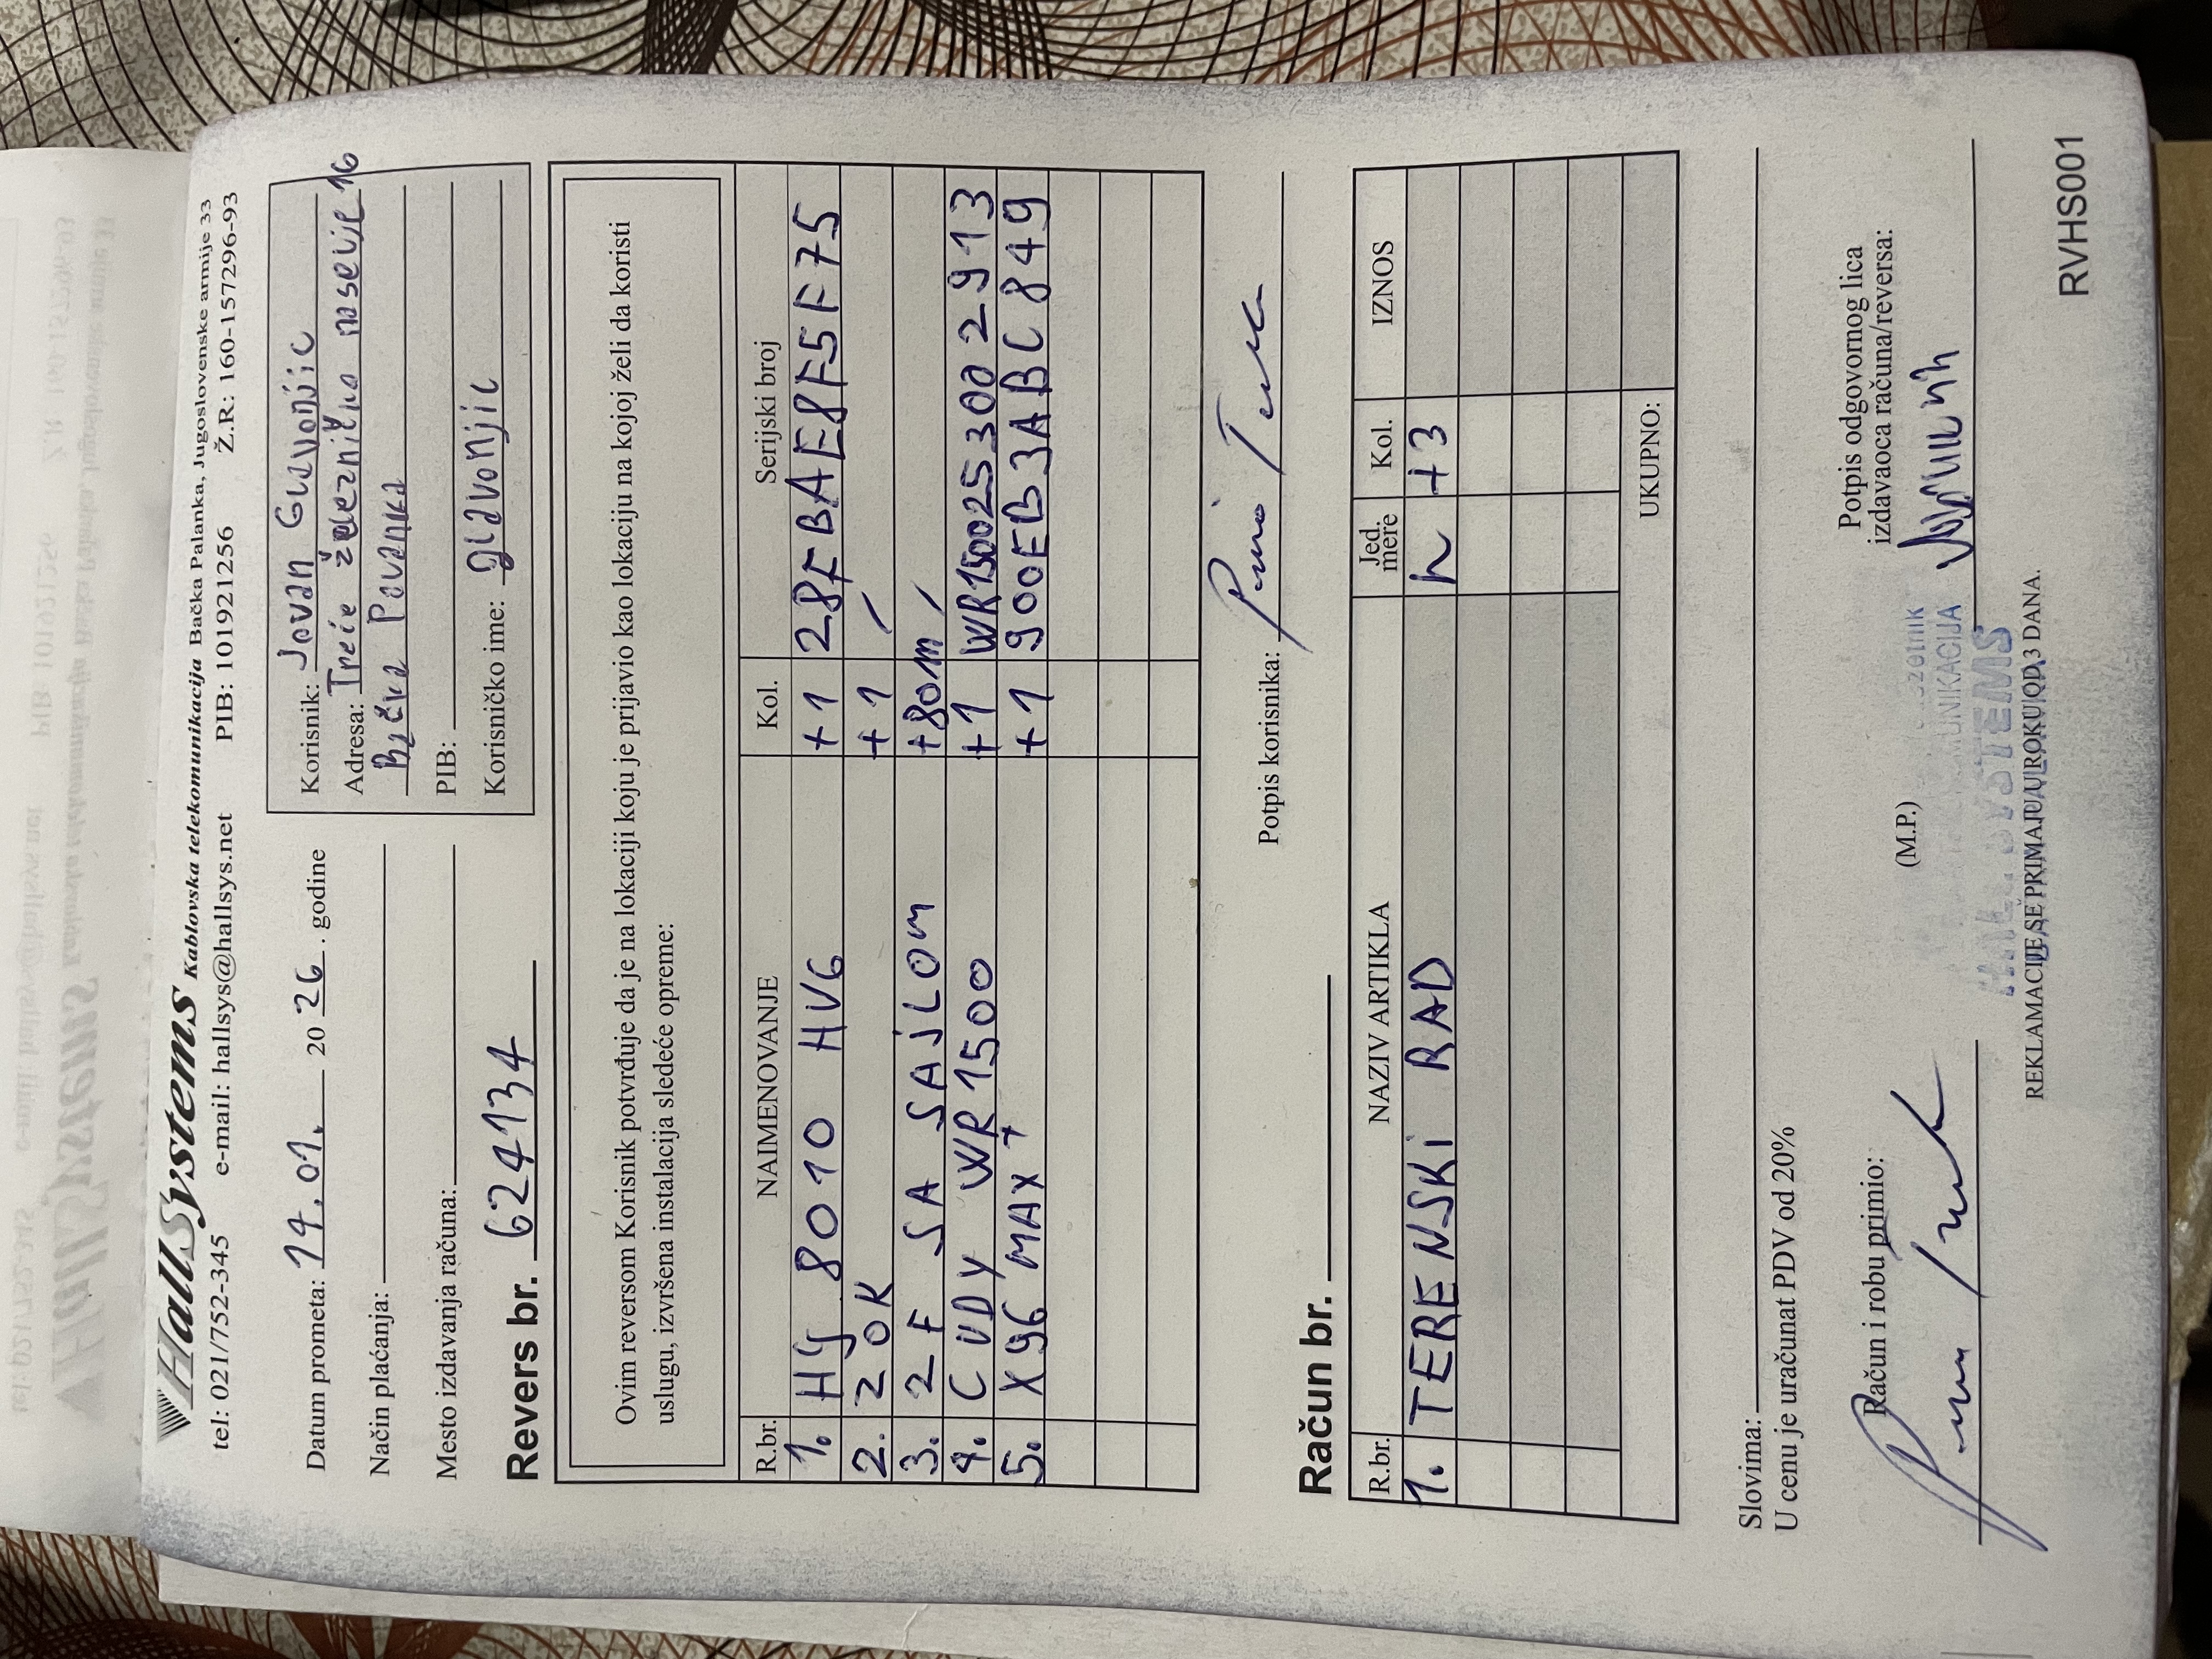 HallSystems Kablovska telekomunikacija Bačka Palanka, Jugoslovenske armije 33
tel: 021/752-345 e-mail: hallsys@hallsys.net PIB: 101921256 Ž.R.: 160-157296-93
Datum prometa: 14.01. 2026. godine
Način plaćanja:
Mesto izdavanja računa:
Korisnik: Jovan Glavonjic
Adresa: Treće železničko naselje 16
Bačka Palanka
PIB:
Korisničko ime: glavonjic
Revers br. 624134
Ovim reversom Korisnik potvrđuje da je na lokaciji koju je prijavio kao lokaciju na kojoj želi da koristi
uslugu, izvršena instalacija sledeće opreme:
R.br. NAIMENOVANJE Kol. Serijski broj
1. HG 8010 HV6 +1 28FBAE8F5F75
2. ZOK +1 /
3. 2F SA SAJLOM +80m /
4. CUDY WR1500 +1 WR1500253002913
5. X96 MAX+ +1 900EB3ABC849
Potpis korisnika:
Račun br.
R.br. NAZIV ARTIKLA Jed. mere Kol. IZNOS
1. TERENSKI RAD h +3
UKUPNO:
Slovima:
U cenu je uračunat PDV od 20%
Račun i robu primio:
(M.P.)
Potpis odgovornog lica
izdavaoca računa/reversa:
REKLAMACIJE SE PRIMAJU U ROKU OD 3 DANA.
RVHS001